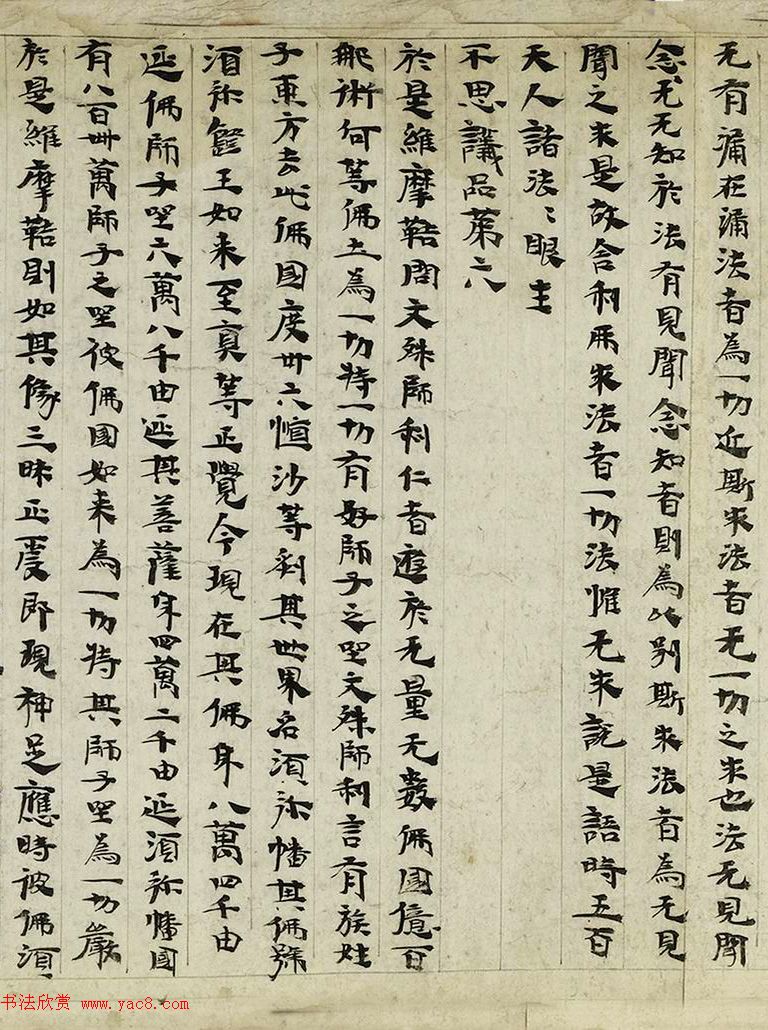 无有漏在漏法者為一切近斯求法者无一切之求也法无見聞
念无无知於法有見聞念知者則為以別斯求法者為无見
聞之求是故舍利弗求法者一切法惟无求說是語時五百
天人諸法〻眼生
不思議品第六
於是維摩鞊問文殊師利仁者遊於无量无數佛國億百
那術何等佛土為一切持一切有好師子之坐文殊師利言有族姓
子東方去此佛國度卅六恒沙等剎其世界名須弥幡其佛號
須弥鐙王如来至真等正覺今現在其佛身八萬四千由
延佛師子坐六萬八千由延其菩薩身四萬二千由延須弥幡國
有八百卌萬師子之坐彼佛國如来為一切持其師子坐為一切嚴
於是維摩鞊則如其像三昧正受即現神足應時彼佛須
书法欣赏 www.yac8.com